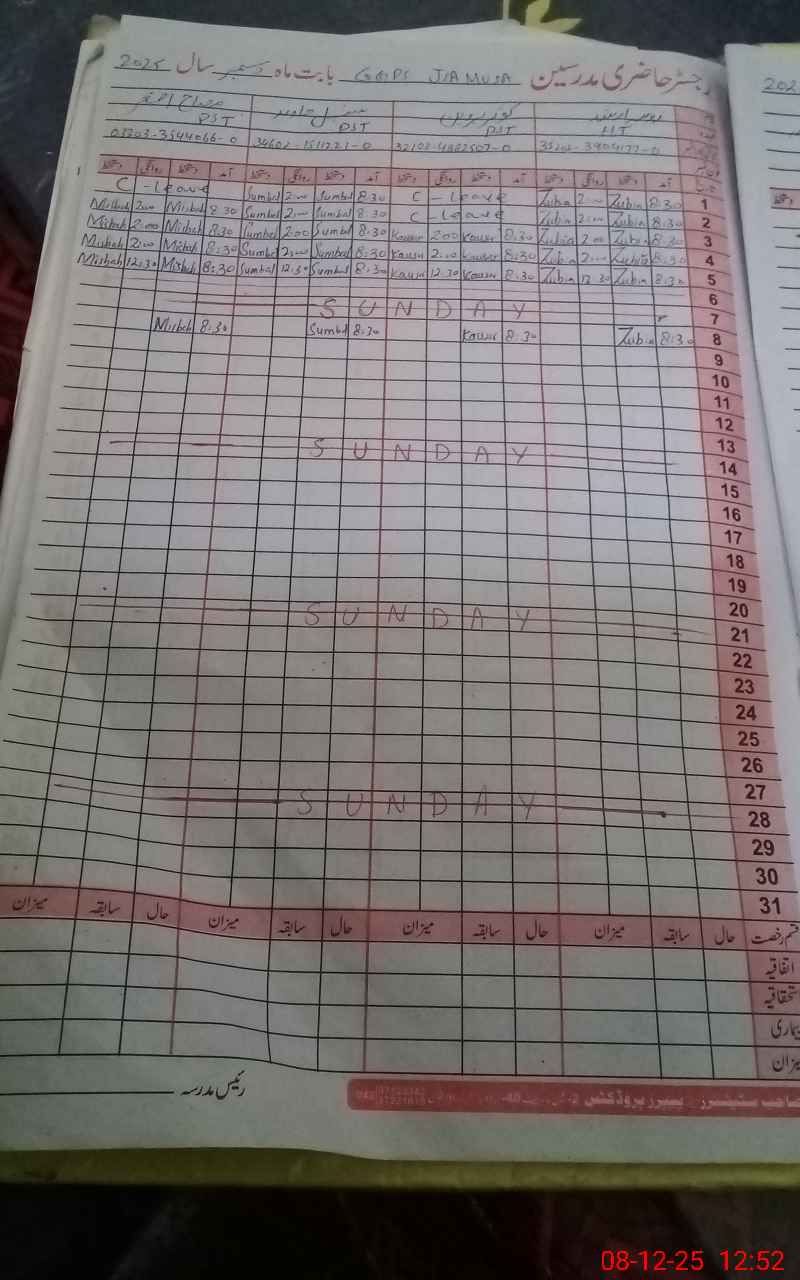 رجسٹر حاضری مدرسین GGPS JIA MUSA بابت ماہ دسمبر سال 2025
PST PST PST HT
34602-1511221-0
دستخط روانگی دستخط آمد دستخط روانگی دستخط آمد دستخط روانگی دستخط آمد دستخط روانگی دستخط آمد
C - Leave Sumbal 2:00 Sumbal 8:30 C - Leave Zubia 2:00 Zubia 8:30 1
Misbah 2:00 Misbah 8:30 Sumbal 2:00 Sumbal 8:30 C - Leave Zubia 2:00 Zubia 8:30 2
Misbah 2:00 Misbah 8:30 Sumbal 2:00 Sumbal 8:30 Kousar 2:00 Kousar 8:30 Zubia 2:00 Zubia 8:30 3
Misbah 2:00 Misbah 8:30 Sumbal 2:00 Sumbal 8:30 Kousar 2:00 Kousar 8:30 Zubia 2:00 Zubia 8:30 4
Misbah 12:30 Misbah 8:30 Sumbal 12:30 Sumbal 8:30 Kousar 12:30 Kousar 8:30 Zubia 12:30 Zubia 8:30 5
6
SUNDAY 7
Misbah 8:30 Sumbal 8:30 Kousar 8:30 Zubia 8:30 8
9
10
11
12
13
SUNDAY 14
15
16
17
18
19
20
SUNDAY 21
22
23
24
25
26
27
SUNDAY 28
29
30
31
قسم رخصت حال سابقہ میزان حال سابقہ میزان حال سابقہ میزان حال سابقہ میزان
اتفاقیہ
بیماری
میزان
رئیس مدرسہ
202
08-12-25 12:52